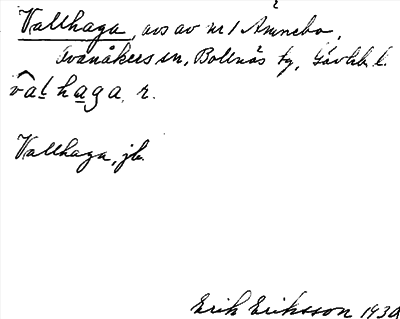 Vallhaga, avs av nr 1 Ämnebo,
Svanåkers sn, Bollnäs tg, Gävleb. l.
vałhaga, r.
Vallhaga, jb.
Erik Eriksson 1930